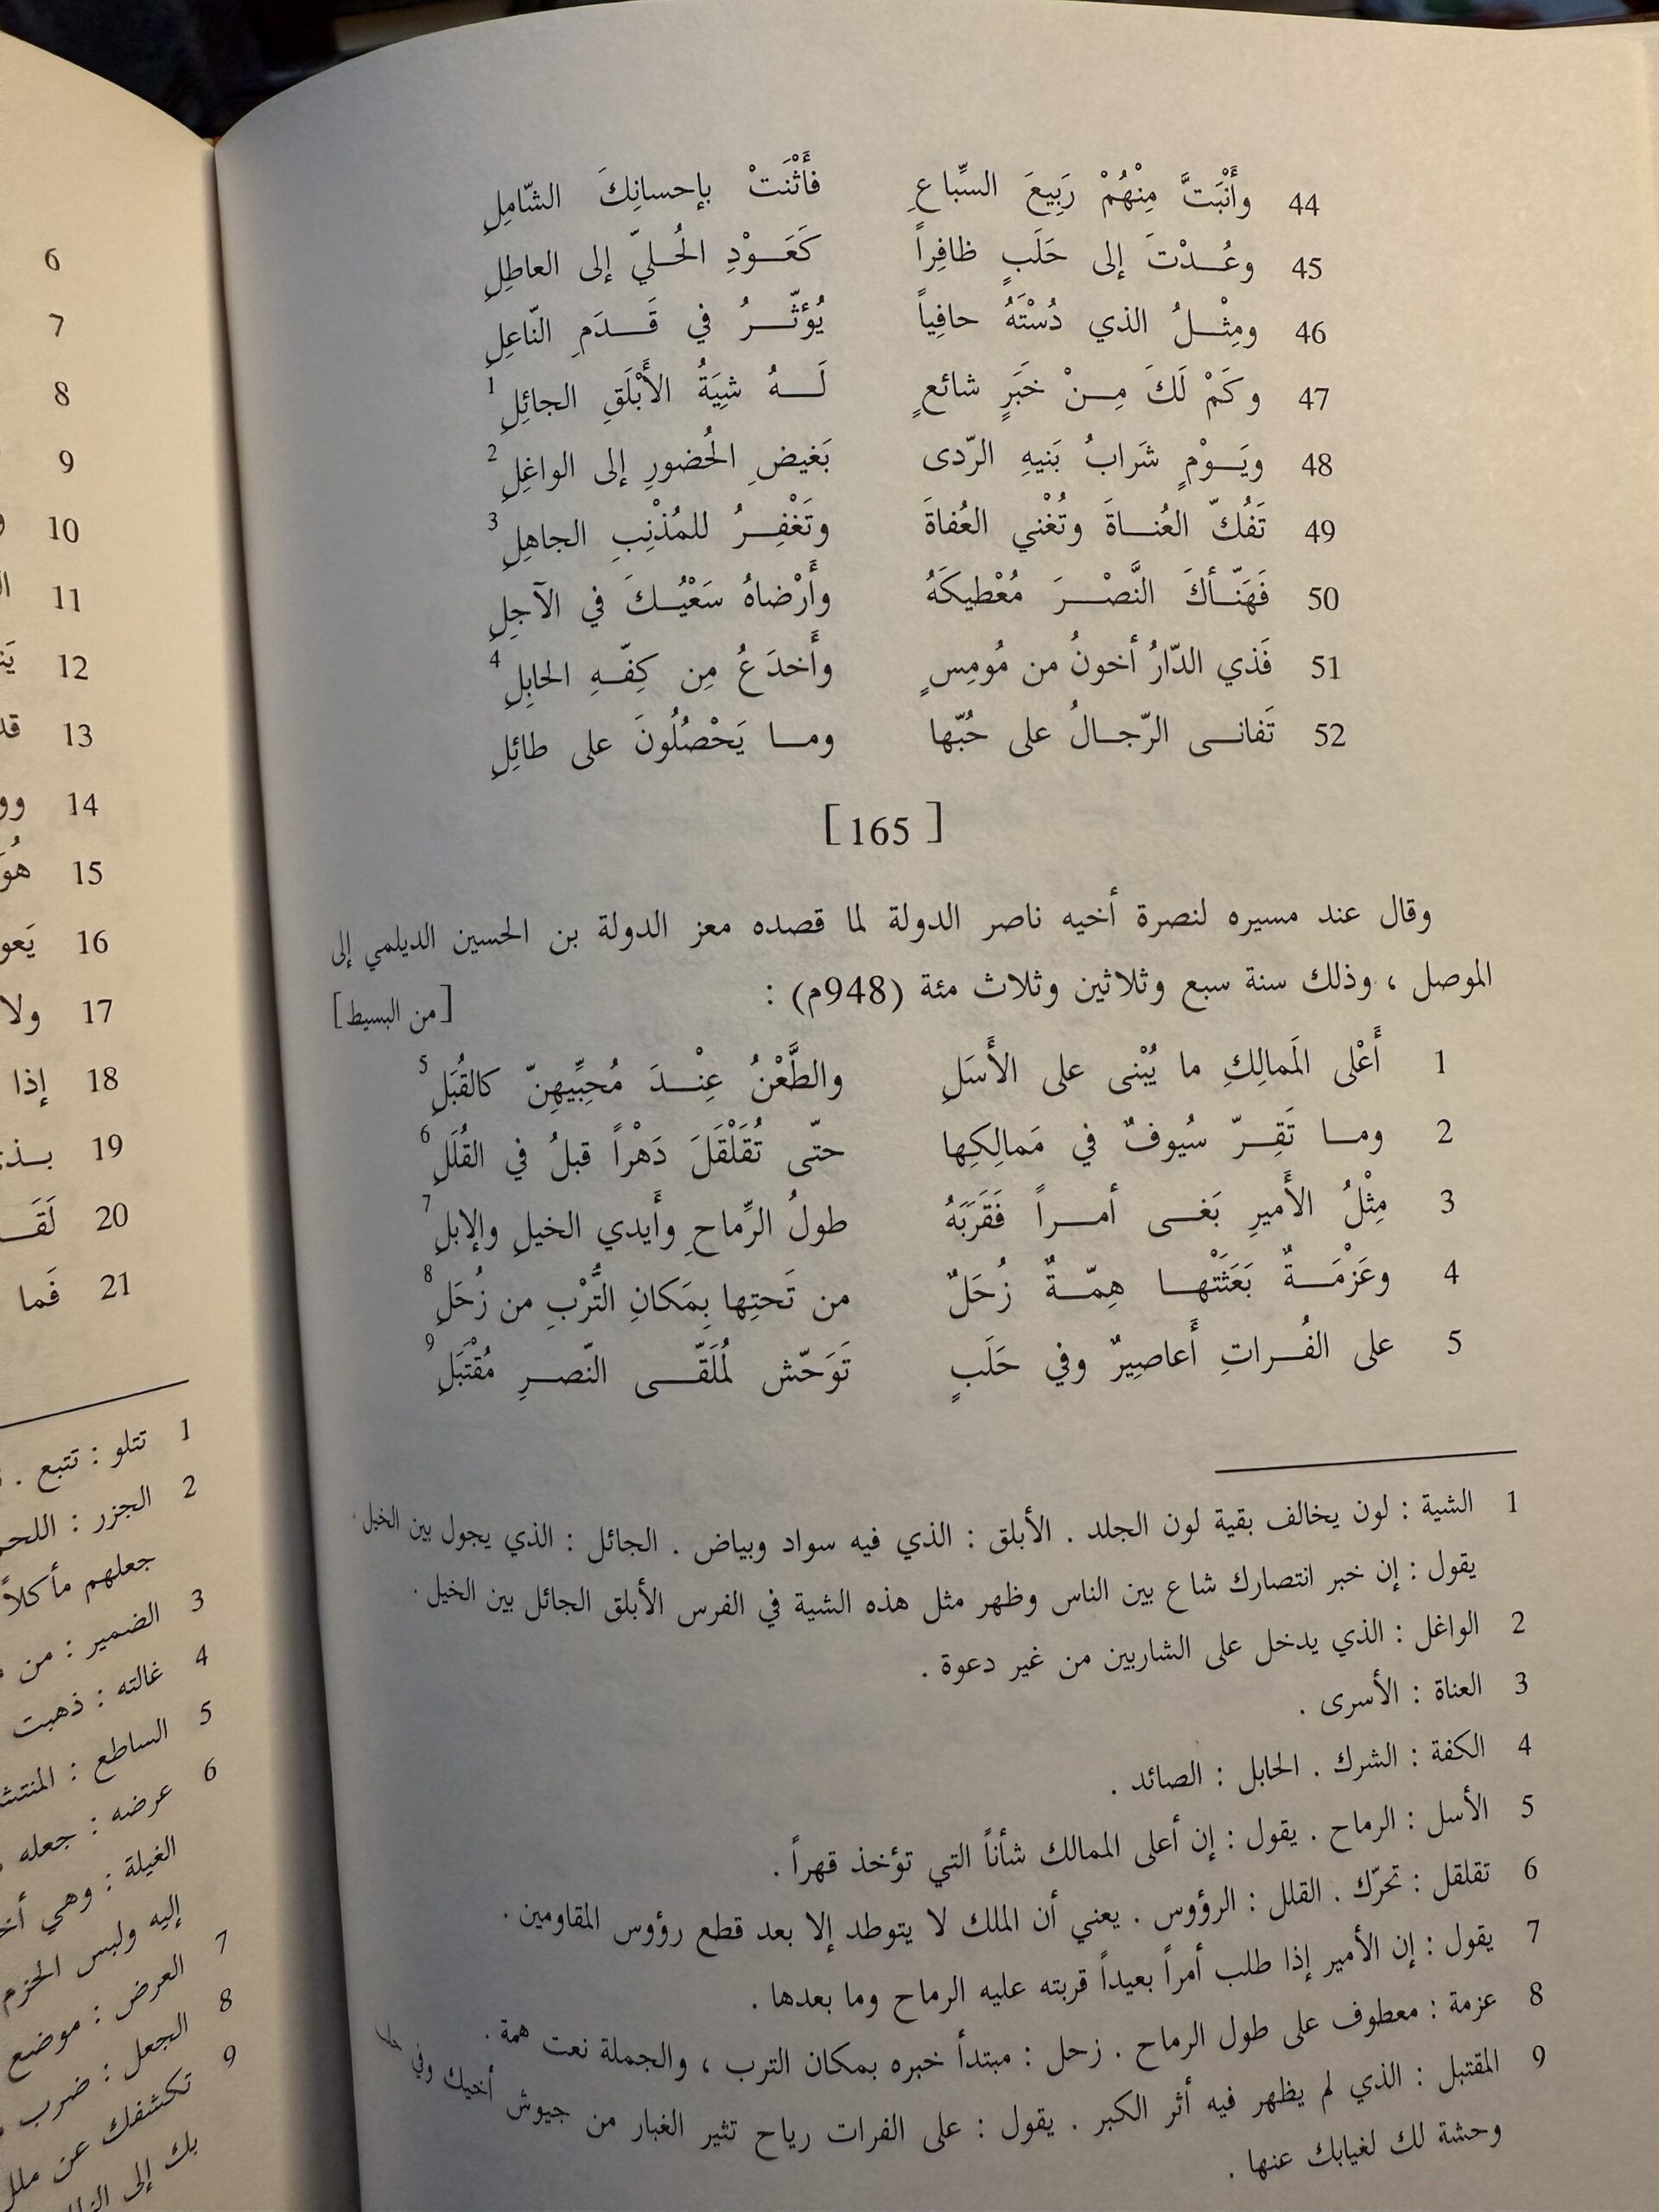 44 وأَنْبَتَّ مِنْهُمْ رَبِيعَ السِّباعِ فأَثْنَتْ بإحسانِكَ الشّامِلِ
45 وعُـدْتَ إلى حَلَبٍ ظافِراً كَعَـوْدِ الحُـليّ إلى العاطِلِ
46 ومِثْـلُ الذي دُسْتَهُ حافِياً يُؤثّـرُ في قَـدَمِ النّاعِلِ
47 وكَمْ لَكَ مِـنْ خَبَرٍ شائعٍ لَـهُ شِيَةُ الأَبْلَقِ الجائِلِ 1
48 ويَـوْمٍ شَرابُ بَنيهِ الرّدى بَغيضِ الحُضورِ إلى الواغِلِ 2
49 تَفُكّ العُنـاةَ وتُغْني العُفاةَ وتَغْفِـرُ للمُذْنِبِ الجاهِلِ 3
50 فَهَنّـأكَ النَّصْـرَ مُعْطيكَهُ وأَرْضاهُ سَعْيُـكَ في الآجِلِ
51 فَذي الدّارُ أخونُ من مُومِسٍ وأَخدَعُ مِن كِفّـهِ الحابِلِ 4
52 تَفانـى الرّجـالُ على حُبّها ومـا يَحْصُلُونَ على طائِلِ
[ 165 ]
وقال عند مسيره لنصرة أخيه ناصر الدولة لما قصده معز الدولة بن الحسين الديلمي إلى
الموصل ، وذلك سنة سبع وثلاثين وثلاث مئة (948م) : [من البسيط]
1 أَعْلى المَمالِكِ ما يُبْنى على الأَسَلِ والطَّعْنُ عِنْـدَ مُحِبِّيهِنّ كالقُبَلِ 5
2 ومـا تَقِـرّ سُيوفٌ في مَمالِكِها حتّى تُقَلْقَلَ دَهْراً قبلُ في القُلَلِ 6
3 مِثْلُ الأَميرِ بَغـى أمـراً فَقَرَبَهُ طولُ الرِّماحِ وأَيدي الخيلِ والإبلِ 7
4 وعَزْمَـةٌ بَعَثَتْهـا هِمّـةٌ زُحَلٌ من تَحتِها بِمَكانِ التُّرْبِ من زُحَلِ 8
5 على الفُـراتِ أَعاصِيرٌ وفي حَلَبٍ تَوَحّش لُملَقّـى النّصـرِ مُقْتَبَلِ 9
1 الشية : لون يخالف بقية لون الجلد . الأبلق : الذي فيه سواد وبياض . الجائل : الذي يجول بين الخيل .
يقول : إن خبر انتصارك شاع بين الناس وظهر مثل هذه الشية في الفرس الأبلق الجائل بين الخيل .
2 الواغل : الذي يدخل على الشاربين من غير دعوة .
3 العناة : الأسرى .
4 الكفة : الشرك . الحابل : الصائد .
5 الأسل : الرماح . يقول : إن أعلى الممالك شأناً التي تؤخذ قهراً .
6 تقلقل : تحرّك . القلل : الرؤوس . يعني أن الملك لا يتوطد إلا بعد قطع رؤوس المقاومين .
7 يقول : إن الأمير إذا طلب أمراً بعيداً قربته عليه الرماح وما بعدها .
8 عزمة : معطوف على طول الرماح . زحل : مبتدأ خبره بمكان الترب ، والجملة نعت همة .
9 المقتبل : الذي لم يظهر فيه أثر الكبر . يقول : على الفرات رياح تثير الغبار من جيوش أخيك وفي
وحشة لك لغيابك عنها .
6
7
8
9
10
11
12
13
14
15
16
17 ولا
18 إذا
19
20
21 فَما
1 تتلو : تتبع .
2 الجزر :
جعلهم مأكلاً
3 الضمير : من
4 غالته : ذهبت
5 الساطع :
6 عرضه : جعله
الغيلة : وهي
إليه ولبس الحزم
7 العرض : موضع
8 الجعل : ضرب
9 تكشفك عن
بك إلى